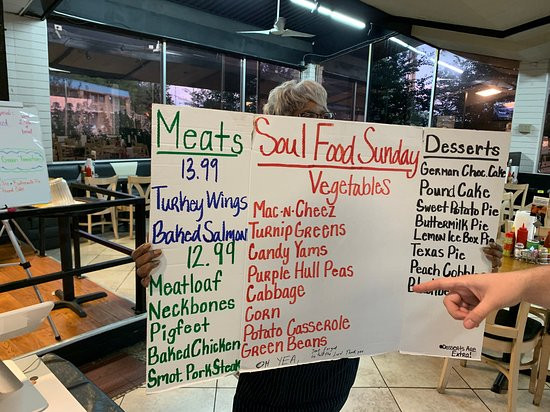 Meats
13.99
Turkey Wings
Baked Salmon
12.99
Meatloaf
Neckbones
Pigfeet
Baked Chicken
Smot. Pork Steak
Soul Food Sunday
Vegetables
Mac-N-Cheez
Turnip Greens
Candy Yams
Purple Hull Peas
Cabbage
Corn
Potato Casserole
Green Beans
OH YEA,
Desserts
German Choc. Cake
Pound Cake
Sweet Potato Pie
Buttermilk Pie
Lemon Ice Box Pie
Texas Pie
Peach Cobbl
*Desserts Are
Extra!